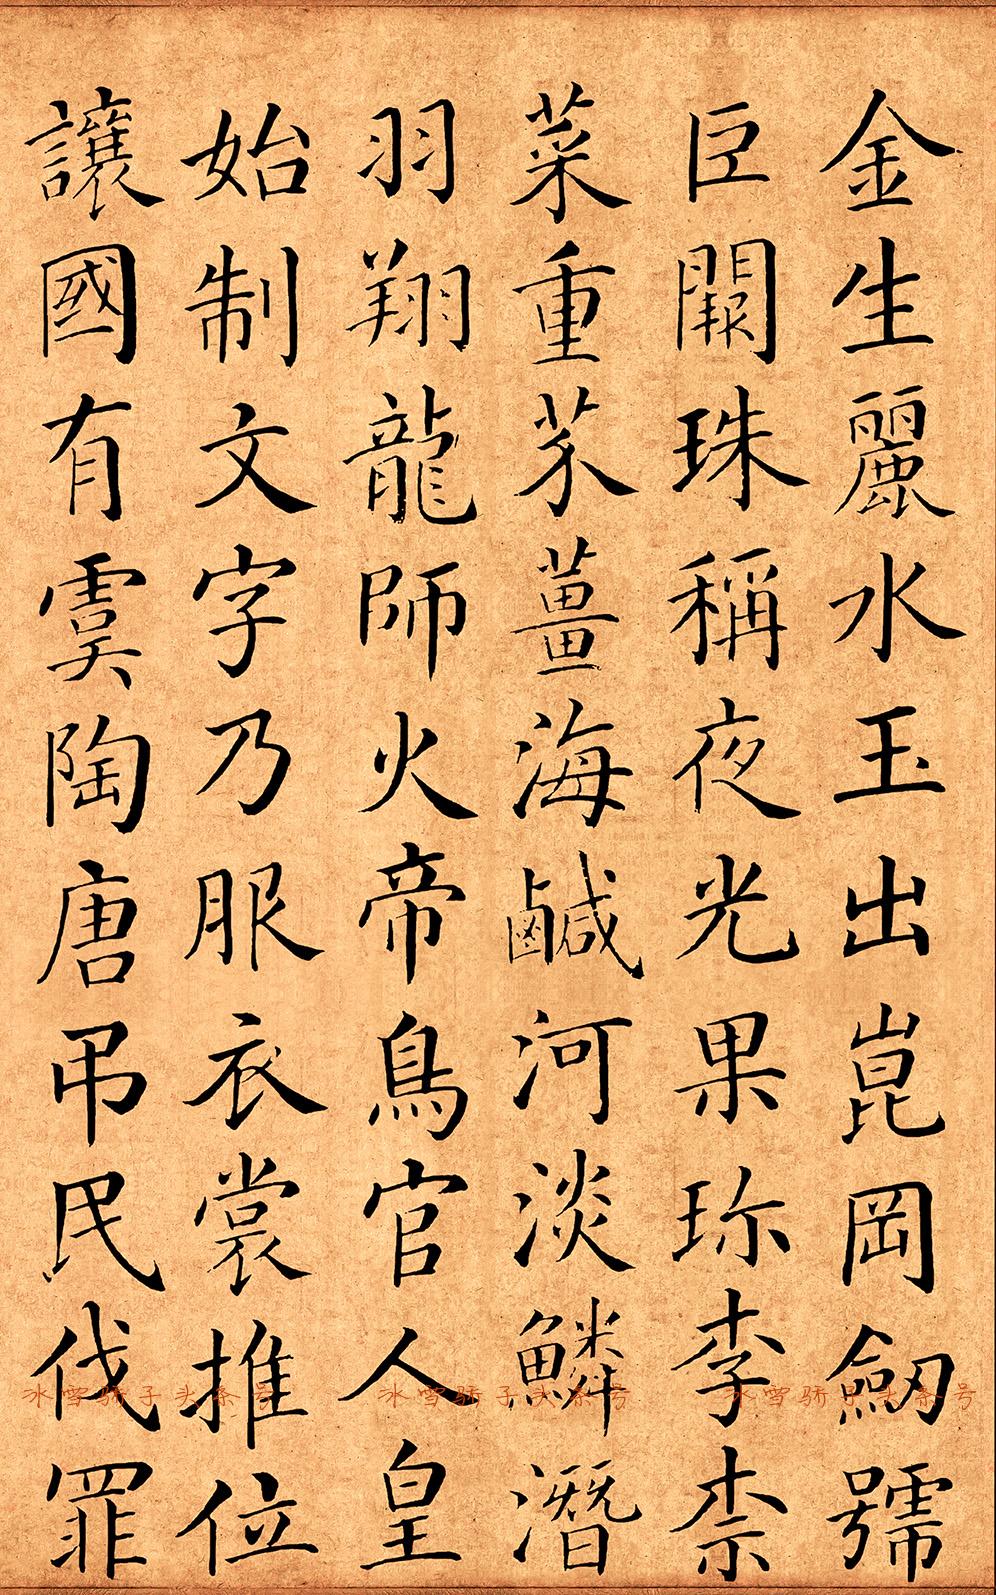 金生麗水玉出崑岡劒號
巨闕珠稱夜光果珎李柰
菜重芥薑海鹹河淡鱗潛
羽翔龍師火帝鳥官人皇
始制文字乃服衣裳推位
讓國有虞陶唐吊民伐罪
冰雪骄子头条号 冰雪骄子头条号 冰雪骄子头条号